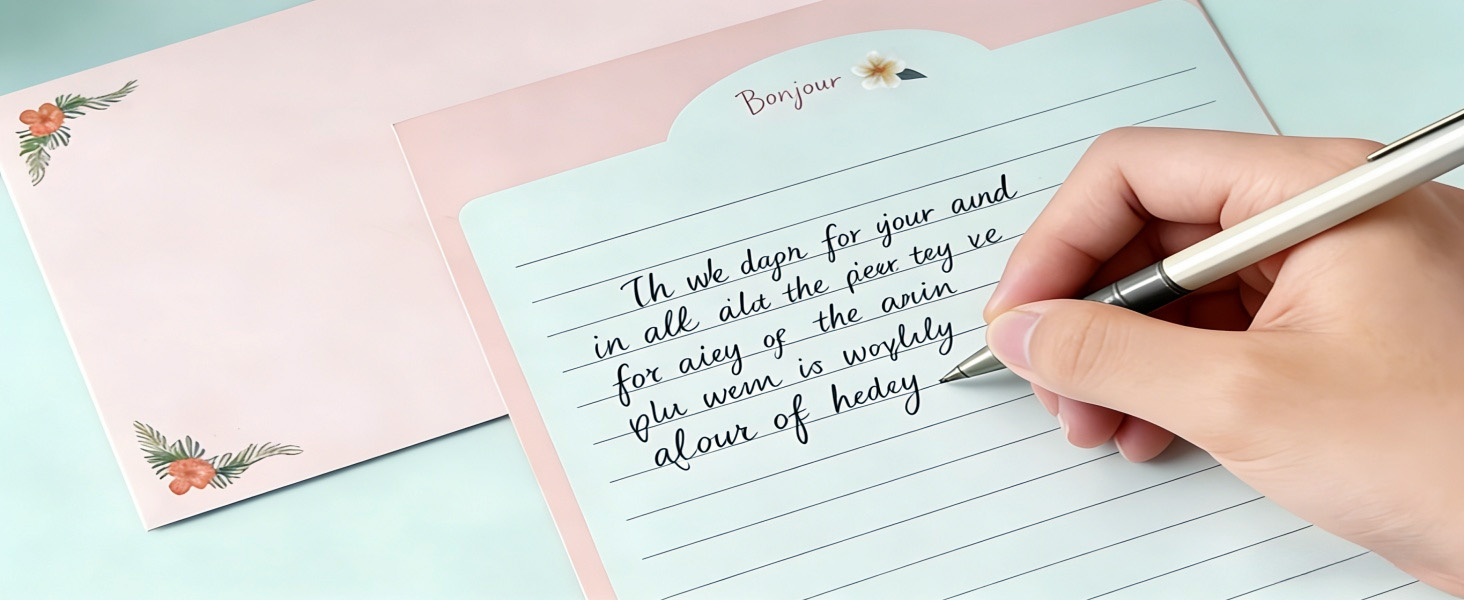 Bonjour
Th we dapn for your aund
in alk aldt the pieer tey ve
for aiey of the anin
plu wem is woyhly
alour of hedey